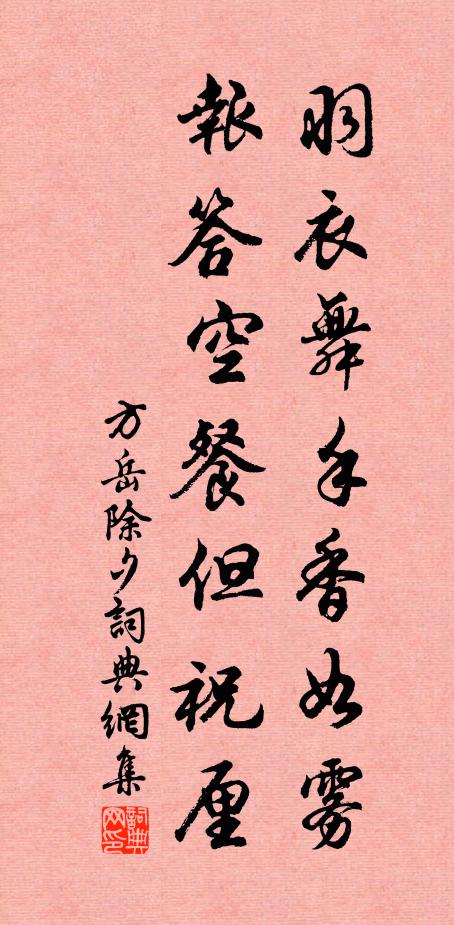 羽衣舞手香如雾
報答空餐但祝厘
方岳除夕詞典網集
詞典网印